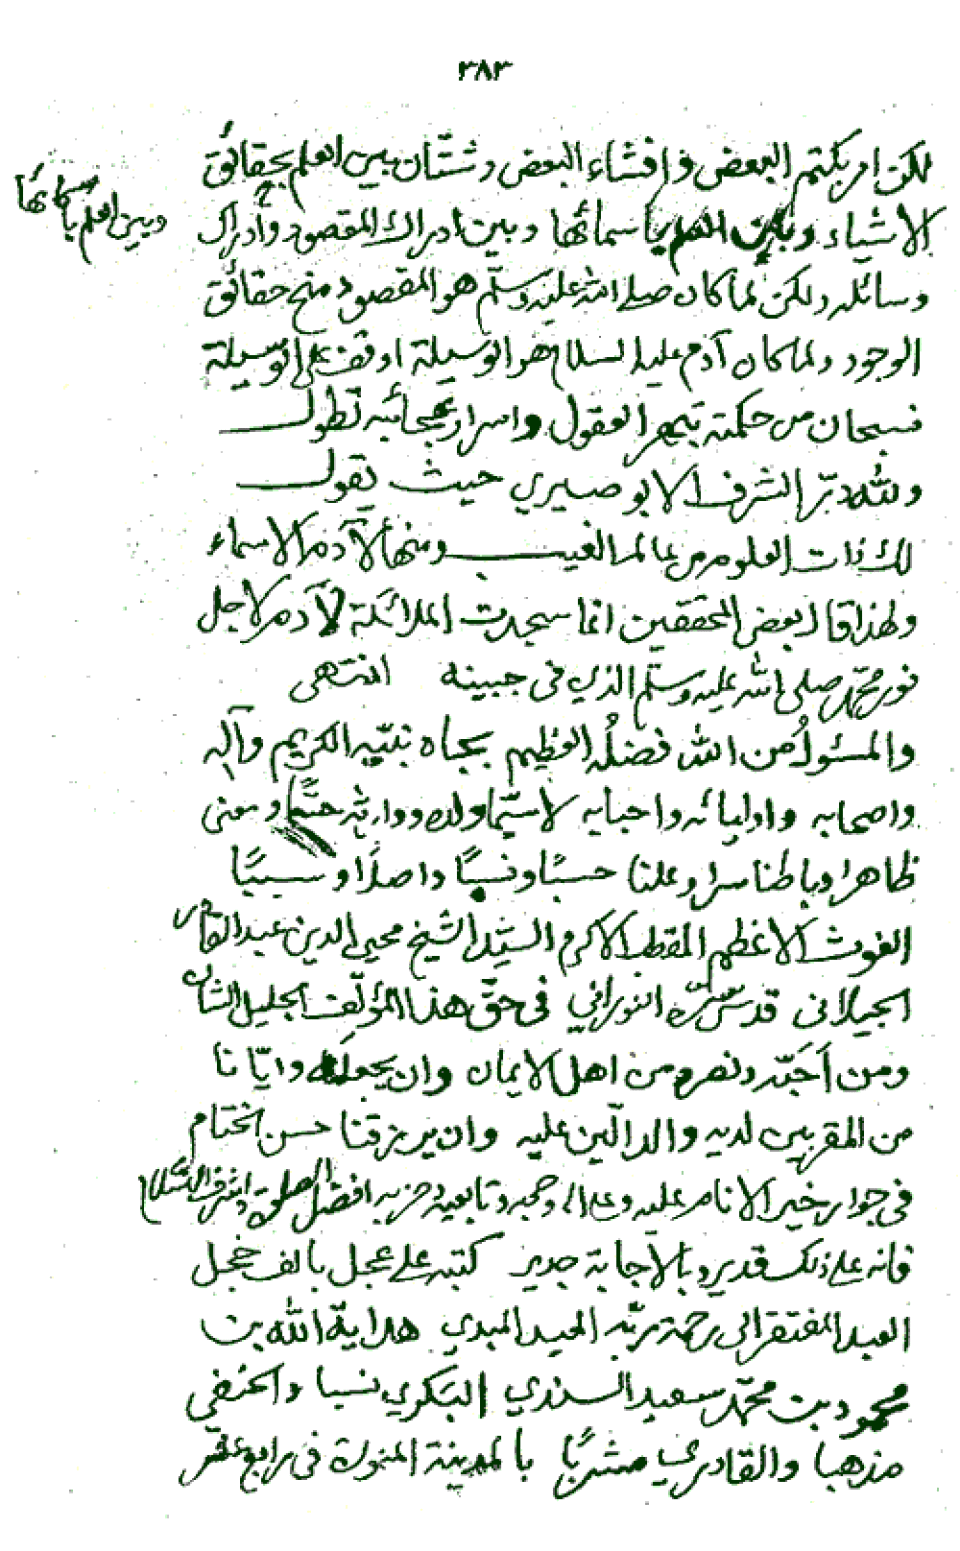 ٣٨٣
لكن امر بكتم البعض وافشاء البعض وشتّان بين العلم بحقائق
الاشياء وبين العلم باسمائها وبين ادراك المقصود وادراك
وبين العلم
وسائله ولكن لما كان صلى الله عليه وسلم هو المقصود منح حقائق
الوجود ولما كان آدم عليه السلام هو الوسيلة اوقف على الوسيلة
فسبحان من حكمته تبهر العقول واسرار عجائبه تطول
ولله درّ الشرف الابوصيري حيث يقول
لك ذات العلوم من عالم الغيب ومنها لآدم الاسماء
ولهذا قال بعض المحققين انما سجدت الملائكة لآدم لاجل
نور محمّد صلى الله عليه وسلم الذي فى جبينه انتهى
والمسئولُ من الله فضلُه العظيم بجاه نبيّه الكريم وآله
واصحابه واوليائه واحبابه لاسيّما ولده ووارثه حسًّا ومعنى
ظاهرا وباطنا سرا وعلنا حسبًا ونسبًا واصلًا وسببًا
الغوث الاعظم القطب الاكرم السيّد الشيخ محيي الدين عبد القادر
الجيلانى قدّس سرّه النوراني فى حقّ هذا المؤلّف الجليل الشان
ومن أحَبّه ونصره من اهل الايمان وان يجعله وايّانا
من المقربين لديه والدالّين عليه وان يرزقنا حسن الختام
فى جوار خير الانام عليه وعلى اله وصحبه وتابعيه وحزبه افضل الصلوة واشرف السّلام
فانه على ذلك قدير وبالاجابة جدير كتبه على عجل بالف خجل
العبد المفتقر الى رحمة ربّه المعيد المبدي هداية الله بن
محمود بن محمّد سعيد السندي البكري نسبا والحنفي
مذهبا والقادري مشربًا بالمدينة المنورة فى رابع عشر